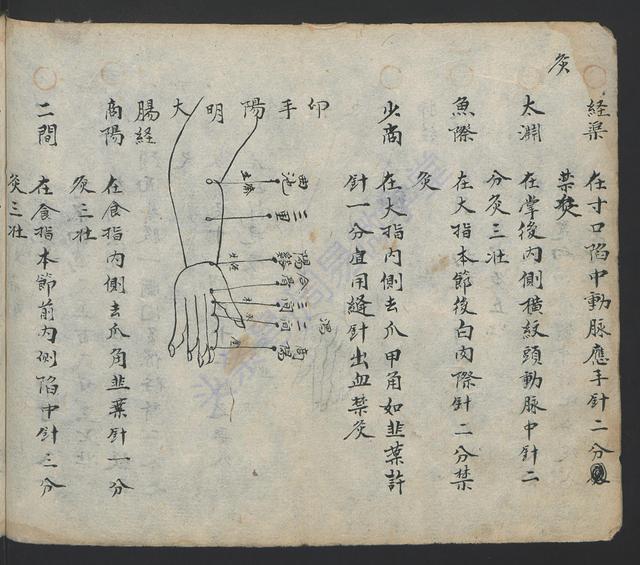 灸
経渠 在寸口陷中動脈應手針二分
禁
太淵 在掌後內側橫紋頭動脈中針二
分灸三壯
魚際 在大指本節後白肉際針二分禁
灸
少商 在大指內側去爪甲角如韭葉許
針一分宜用縫針出血禁灸
卬手陽明大
腸経
曲池
三里
陽谿
合谷
三間
二間
商陽
商陽 在食指內側去爪角韭葉針一分
灸三壯
二間 在食指本節前內側陷中針三分
灸三壯